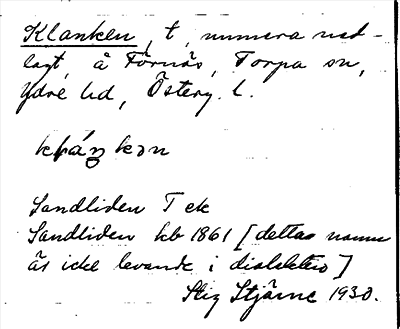 Klanken, t, numera ned-
lagt, å Förnäs, Torpa sn,
Ydre hd, Österg. l.
Sandliden T ek
Sandliden hb 1861 [dettas namn
är icke levande i dialekten]
Stig Stjärne 1930.